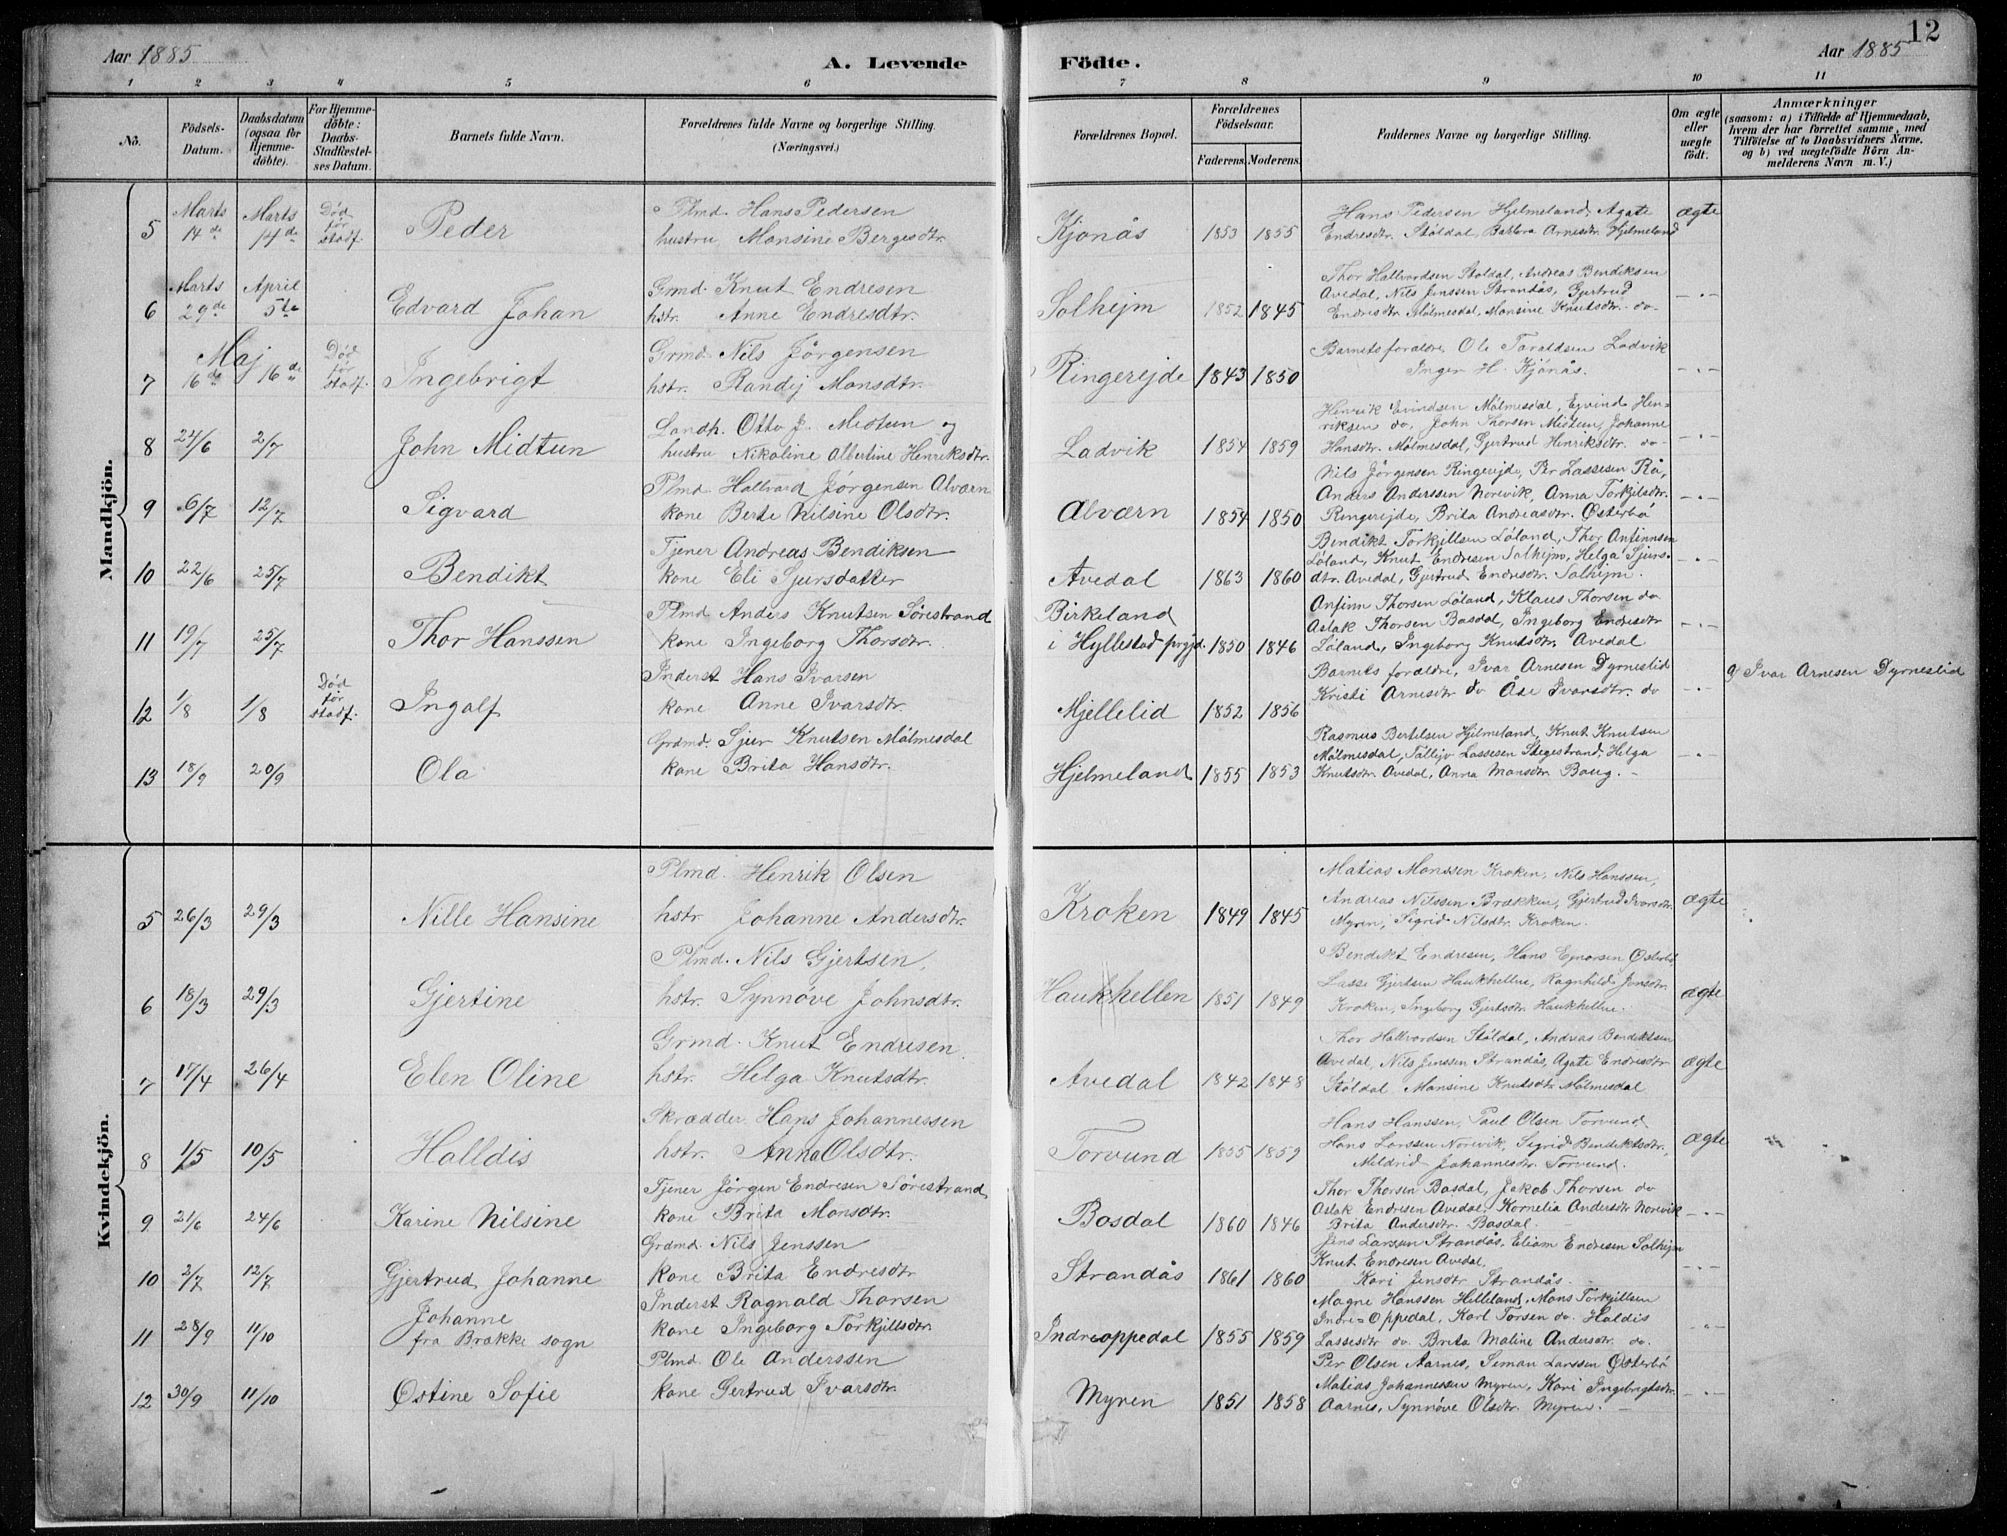 12
Aar 1885
A. Levende Födte.
Aar 1885
1 2 3 4 5 6 7 8 9 10 11
No.
Födsels-Datum.
Daabsdatum (ogsaa for Hjemmedöbte).
For Hjemmedöbte: Daabs-Stadfestelses Datum.
Barnets fulde Navn.
Forældrenes fulde Navne og borgerlige Stilling. (Næringsvei.)
Forældrenes Bopæl.
Forældrenes Födselsaar.
Faderens. Moderens.
Faddernes Navne og borgerlige Stilling.
Om ægte eller uægte födt.
Anmærkninger
(saasom: a) i Tilfælde af Hjemmedaab,
hvem der har forrettet samme, med
Tilföielse af to Daabsvidners Navne,
og b) ved uægtefödte Börn Anmelderens Navn m. V.)
Mandkjön.
5 Marts 14de Marts 14de Död før stadf. Peder
Plmd. Hans Pedersen
hustru Monsine Bergesdtr.
Kjønås 1853 1855
Hans Pedersen Hjelmeland, Agate
Endresdtr. Støldal, Barbara Arnesdtr. Hjelmeland
ægte
6 Marts 29de April 5te Edvard Johan
Grmd. Knut Endresen
hstr. Anne Endresdtr.
Solhejm 1852 1845
Thor Hallvardsen Støldal, Andreas Bendiksen
Avedal, Nils Jenssen Strandås, Gjertrud
Endresdtr Mølmesdal, Monsine Knutsdtr. do-
-"-
7 Maj 16de 16de Død før stadf. Ingebrigt
Grmd. Nils Jørgensen
hstr. Randij Monsdtr.
Ringerejde 1843 1850
Barnets forældre, Ole Toraldsen Ladvik
Inger H. Kjønås.
-"-
8 24/6 2/7 John Midtun
Landh. Otto J. Midtun og
hustru Nikoline Albertine Henriksdtr.
Ladvik 1854 1859
Henrik Eivindsen Mølmesdal, Ejvind Hen-
riksen do, John Thorsen Midtun, Johanne
Hansdtr. Mølmesdal, Gjertrud Henriksdtr. do-
-"-
9 6/7 12/7 Sigvard
Plmd. Hallvard Jørgensen Alværn
kone Berte Nilsine Olsdtr.
Alværn 1854 1850
Nils Jørgensen Ringerejde, Per Lassesen Rå,
Anders Anderssen Norevik, Anna Torkjilsdtr.
Ringerejde, Brita Andreasdtr. Østerbø
-"-
10 22/6 25/7 Bendikt
Tjener Andreas Bendiksen
kone Eli Sjursdatter
Avedal 1863 1860
Bendikt Torkjillsen Løland, Thor Anfinnsen
Løland, Knut Endresen Solhejm, Helga Sjurs-
dtr. Avedal, Gjertrud Endresdtr. Solhejm.
-"-
11 19/7 25/7 Thor Hanssen
Plmd Anders Knutsen Sørestrand
kone Ingeborg Thorsdtr.
Birkeland
i Hyllestad prgjd. 1850 1846
Anfinn Thorsen Løland, Klaus Thorsen do
Aslak Thorsen Basdal, Ingeborg Endresdtr
Løland, Ingeborg Knutsdtr. Avedal
-"-
12 1/8 1/8 Død før stadf. Ingalf
Inderst Hans Ivarsen
kone Anne Ivarsdtr.
Mjellelid 1852 1856
Barnets forældre, Ivar Arnesen Dyrneslid
Kristi Arnesdtr do Åse Ivarsdtr. do
-"-
a) Ivar Arnesen Dyrneslid
13 18/9 20/9 Ola
Grdmd. Sjur Knutsen Mølmesdal
kone Brita Hansdtr.
Hjelmeland 1855 1853
Rasmus Bertelsen Hjelmeland, Knut Knutsen
Mølmesdal, Tollejv Lassesen Stegestrand, Helga
Knutsdtr. Avedal, Anna Monsdtr. Boug.-
-"-
Kvindekjön.
5 26/3 29/3 Nille Hansine
Plmd. Henrik Olsen
hstr. Johanne Andersdtr.
Kroken 1849 1845
Matias Monssen Kroken, Nils Hanssen,
Andreas Nilssen Brækken, Gjertrud Ivarsdtr.
Myren, Sigrid Nilsdtr. Kroken.
ægte
6 18/3 29/3 Gjertine
Plmd. Nils Gjertsen,
hstr. Synnøve Johnsdtr.
Haukhellen 1851 1849
Bendikt Endresen, Hans Ejnorsen Østerbø,
Lasse Gjertsen Haukhellen, Ragnhild Jonsdtr.
Kroken, Ingeborg Gjertsdtr. Haukhellen.
ægte
7 17/4 26/4 Elen Oline
Grmd. Knut Endresen
hstr. Helga Knutsdtr.
Avedal 1842 1848
Thor Hallvordsen Støldal, Andreas Bendiktsen
Avedal, Nils Jenssen Strandås, Agate Endresdtr.
Støldal Monsine Knutsdtr Mølmesdal
ægte
8 1/5 10/5 Halldis
Skrædder Hans Johannessen
hstr. Anna Olsdtr.
Torvund 1855 1859
Hans Hanssen, Paul Olsen Torvund,
Hans Larssen Norevik, Sigrid Bendiktsdtr.,
Mildrid Johannesdtr. Torvund.
ægte
9 21/6 24/6 Karine Nilsine
Tjener Jørgen Endresen Sørestrand,
kone Brita Monsdtr.
Basdal 1860 1846
Thor Thorsen Basdal, Jakob Thorsen do
Aslak Endresen Avedal, Kornelia Andersdtr Norevik
Brita Andersdtr. Basdal.
-"-
10 2/7 12/7 Gjertrud Johanne
Grdmd. Nils Jenssen
kone Brita Endresdtr
Strandås 1861 1860
Jens Larssen Strandås, Eliam Endresen Solhejm
Knut Endresen Avedal,
Kari Jensdtr Strandås.
-"-
11 28/9 11/10 Johanne
fra Brække sogn
Inderst Ragnald Thorsen
kone Ingeborg Torkjillsdtr.
Indreoppedal 1855 1859
Magne Hanssen Helleland, Mons Torkjillsen
Indre-Oppedal, Karl Torsen do. Haldis
Lassesdtr do. Brita Maline Andersdtr. do.
"
12 30/9 11/10 Østine Sofie
Plmd. Ole Anderssen
kone Gertrud Ivarsdtr.
Myren 1851 1858
Per Olsen Aarnes, Simon Larssen Østerbø
Matias Johannessen Myren, Kari Ingebrigtsdtr.
Aarnes, Synnøve Olsdtr. Myren.-
-"-